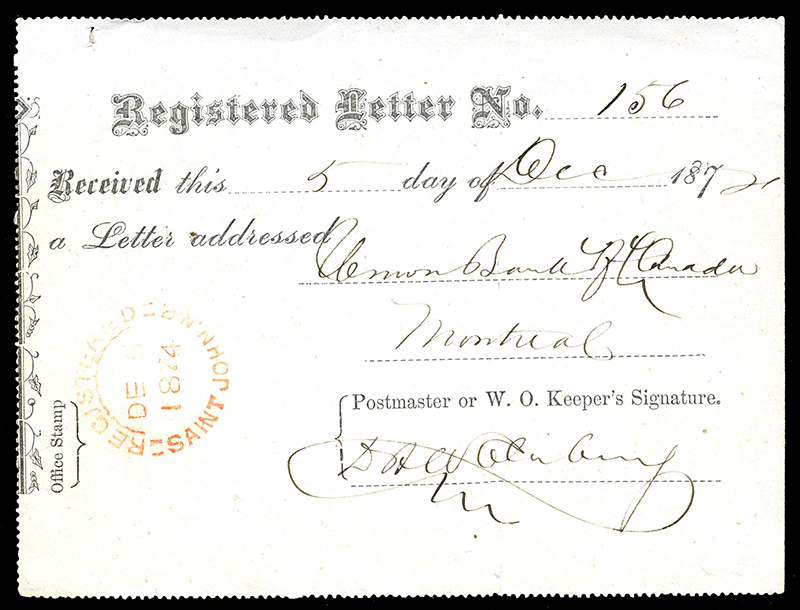 Registered Letter No. 156
Received this 5 day of Dec 1874
a Letter addressed
Union Bank of Canada
Montreal
Postmaster or W. O. Keeper's Signature.
Office Stamp
REGISTERED SAINT JOHN. N.B.
DE 5
1874